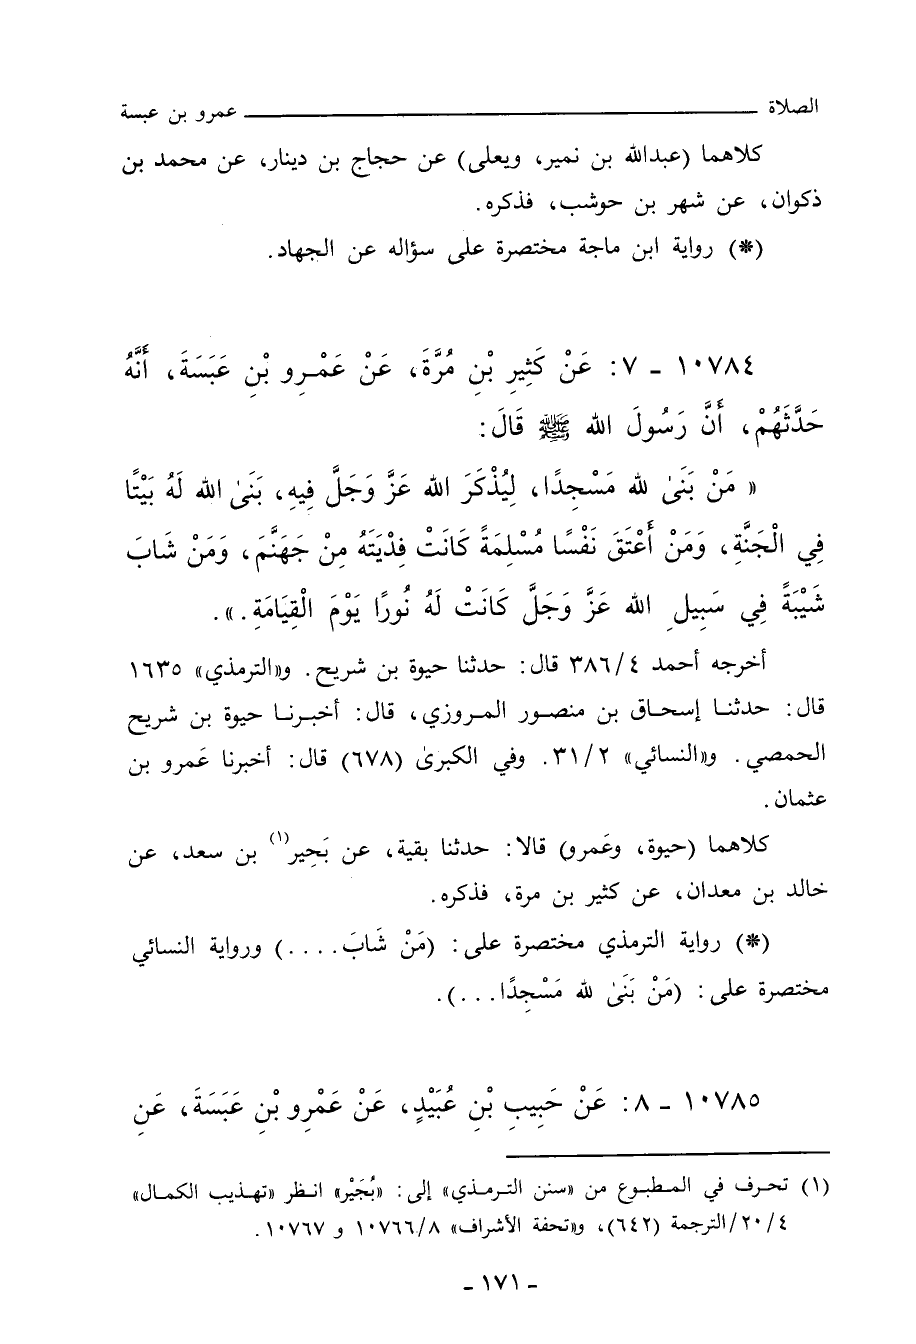 الصلاة ــــــــــــــــــ عمرو بن عبسة
كلاهما (عبدالله بن نمير، ويعلى) عن حجاج بن دينار، عن محمد بن
ذكوان، عن شهر بن حوشب، فذكره.
(*) رواية ابن ماجة مختصرة على سؤاله عن الجهاد.
١٠٧٨٤ ـ ٧: عَنْ كَثِيرِ بْنِ مُرَّةَ، عَنْ عَمْرِو بْنِ عَبَسَةَ، أَنَّهُ
حَدَّثَهُمْ، أَنَّ رَسُولَ الله ﷺ قَالَ:
« مَنْ بَنَىٰ لله مَسْجِدًا، لِيُذْكَرَ الله عَزَّ وَجَلَّ فِيهِ، بَنَىٰ الله لَهُ بَيْتًا
فِي الْجَنَّةِ، وَمَنْ أَعْتَقَ نَفْسًا مُسْلِمَةً كَانَتْ فِدْيَتَهُ مِنْ جَهَنَّمَ، وَمَنْ شَابَ
شَيْبَةً فِي سَبِيلِ الله عَزَّ وَجَلَّ كَانَتْ لَهُ نُورًا يَوْمَ الْقِيَامَةِ.».
أخرجه أحمد ٣٨٦/٤ قال: حدثنا حيوة بن شريح. و«الترمذي» ١٦٣٥
قال: حدثنا إسحاق بن منصور المروزي، قال: أخبرنا حيوة بن شريح
الحمصي. و«النسائي» ٣١/٢. وفي الكبرىٰ (٦٧٨) قال: أخبرنا عَمرو بن
عثمان.
كلاهما (حيوة، وعَمرو) قالا: حدثنا بقية، عن بَحِير(١) بن سعد، عن
خالد بن معدان، عن كثير بن مرة، فذكره.
(*) رواية الترمذي مختصرة على: (مَنْ شَابَ....) ورواية النسائي
مختصرة على: (مَنْ بَنَىٰ لله مَسْجِدًا...).
١٠٧٨٥ ـ ٨: عَنْ حَبِيبِ بْنِ عُبَيْدٍ، عَنْ عَمْرِو بْنِ عَبَسَةَ، عَنِ
(١) تحرف في المطبوع من «سنن الترمذي» إلى: «بُجَيْر» انظر «تهذيب الكمال»
٢٠/٤/الترجمة (٦٤٢)، و«تحفة الأشراف» ١٠٧٦٦/٨ و ١٠٧٦٧.
ـ ١٧١ ـ